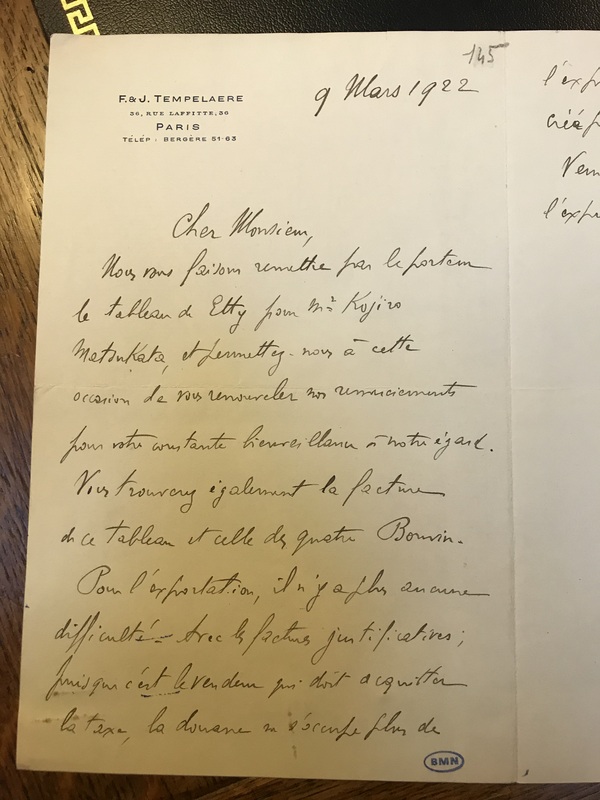 145
F. & J. TEMPELAERE
36, RUE LAFFITTE, 36
PARIS
TÉLÉP : BERGÈRE 51-63
9 Mars 1922
Cher Monsieur,
Nous vous faisons remettre par le porteur
le tableau de Etty pour Mr Kojiro
Matsukata, et permettez-nous à cette
occasion de vous renouveler nos remerciements
pour votre constante bienveillance à notre égard.
Vous trouverez également la facture
de ce tableau et celle des quatre Bonvin.
Pour l'exportation, il n'y a plus aucune
difficulté - Avec les factures justificatives ;
puisque c'est le vendeur qui doit acquitter
la taxe, la douane ne s'occupe plus de
BMN
l'exp
créé
Ven
l'exp